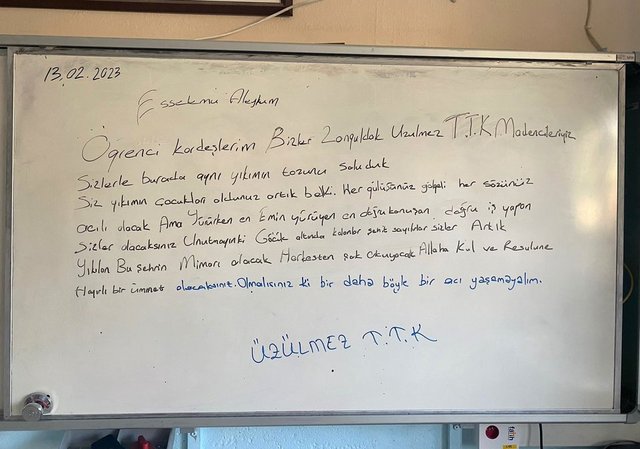 13.02.2023
Esselamü Aleyküm
Öğrenci kardeşlerim Bizler Zonguldak Üzülmez T.T.K Madencileriyiz
Sizlerle burada aynı yıkımın tozunu soluduk
Siz yıkımın çocukları oldunuz artık belki. Her gülüşünüz gölgeli her sözünüz
acılı olacak Ama Yürürken en Emin yürüyen en doğru konuşan, doğru iş yapan
Sizler olacaksınız Unutmayınki Göçük altında kalanlar şehit sayılırlar Sizler Artık
Yıkılan Bu şehrin Mimarı olacak Herkesten çok okuyacak Allaha Kul ve Resulune
Hayırlı bir ümmet olacaksınız. Olmalısınız ki bir daha böyle bir acı yaşamayalım.
ÜZÜLMEZ T.T.K
fatih